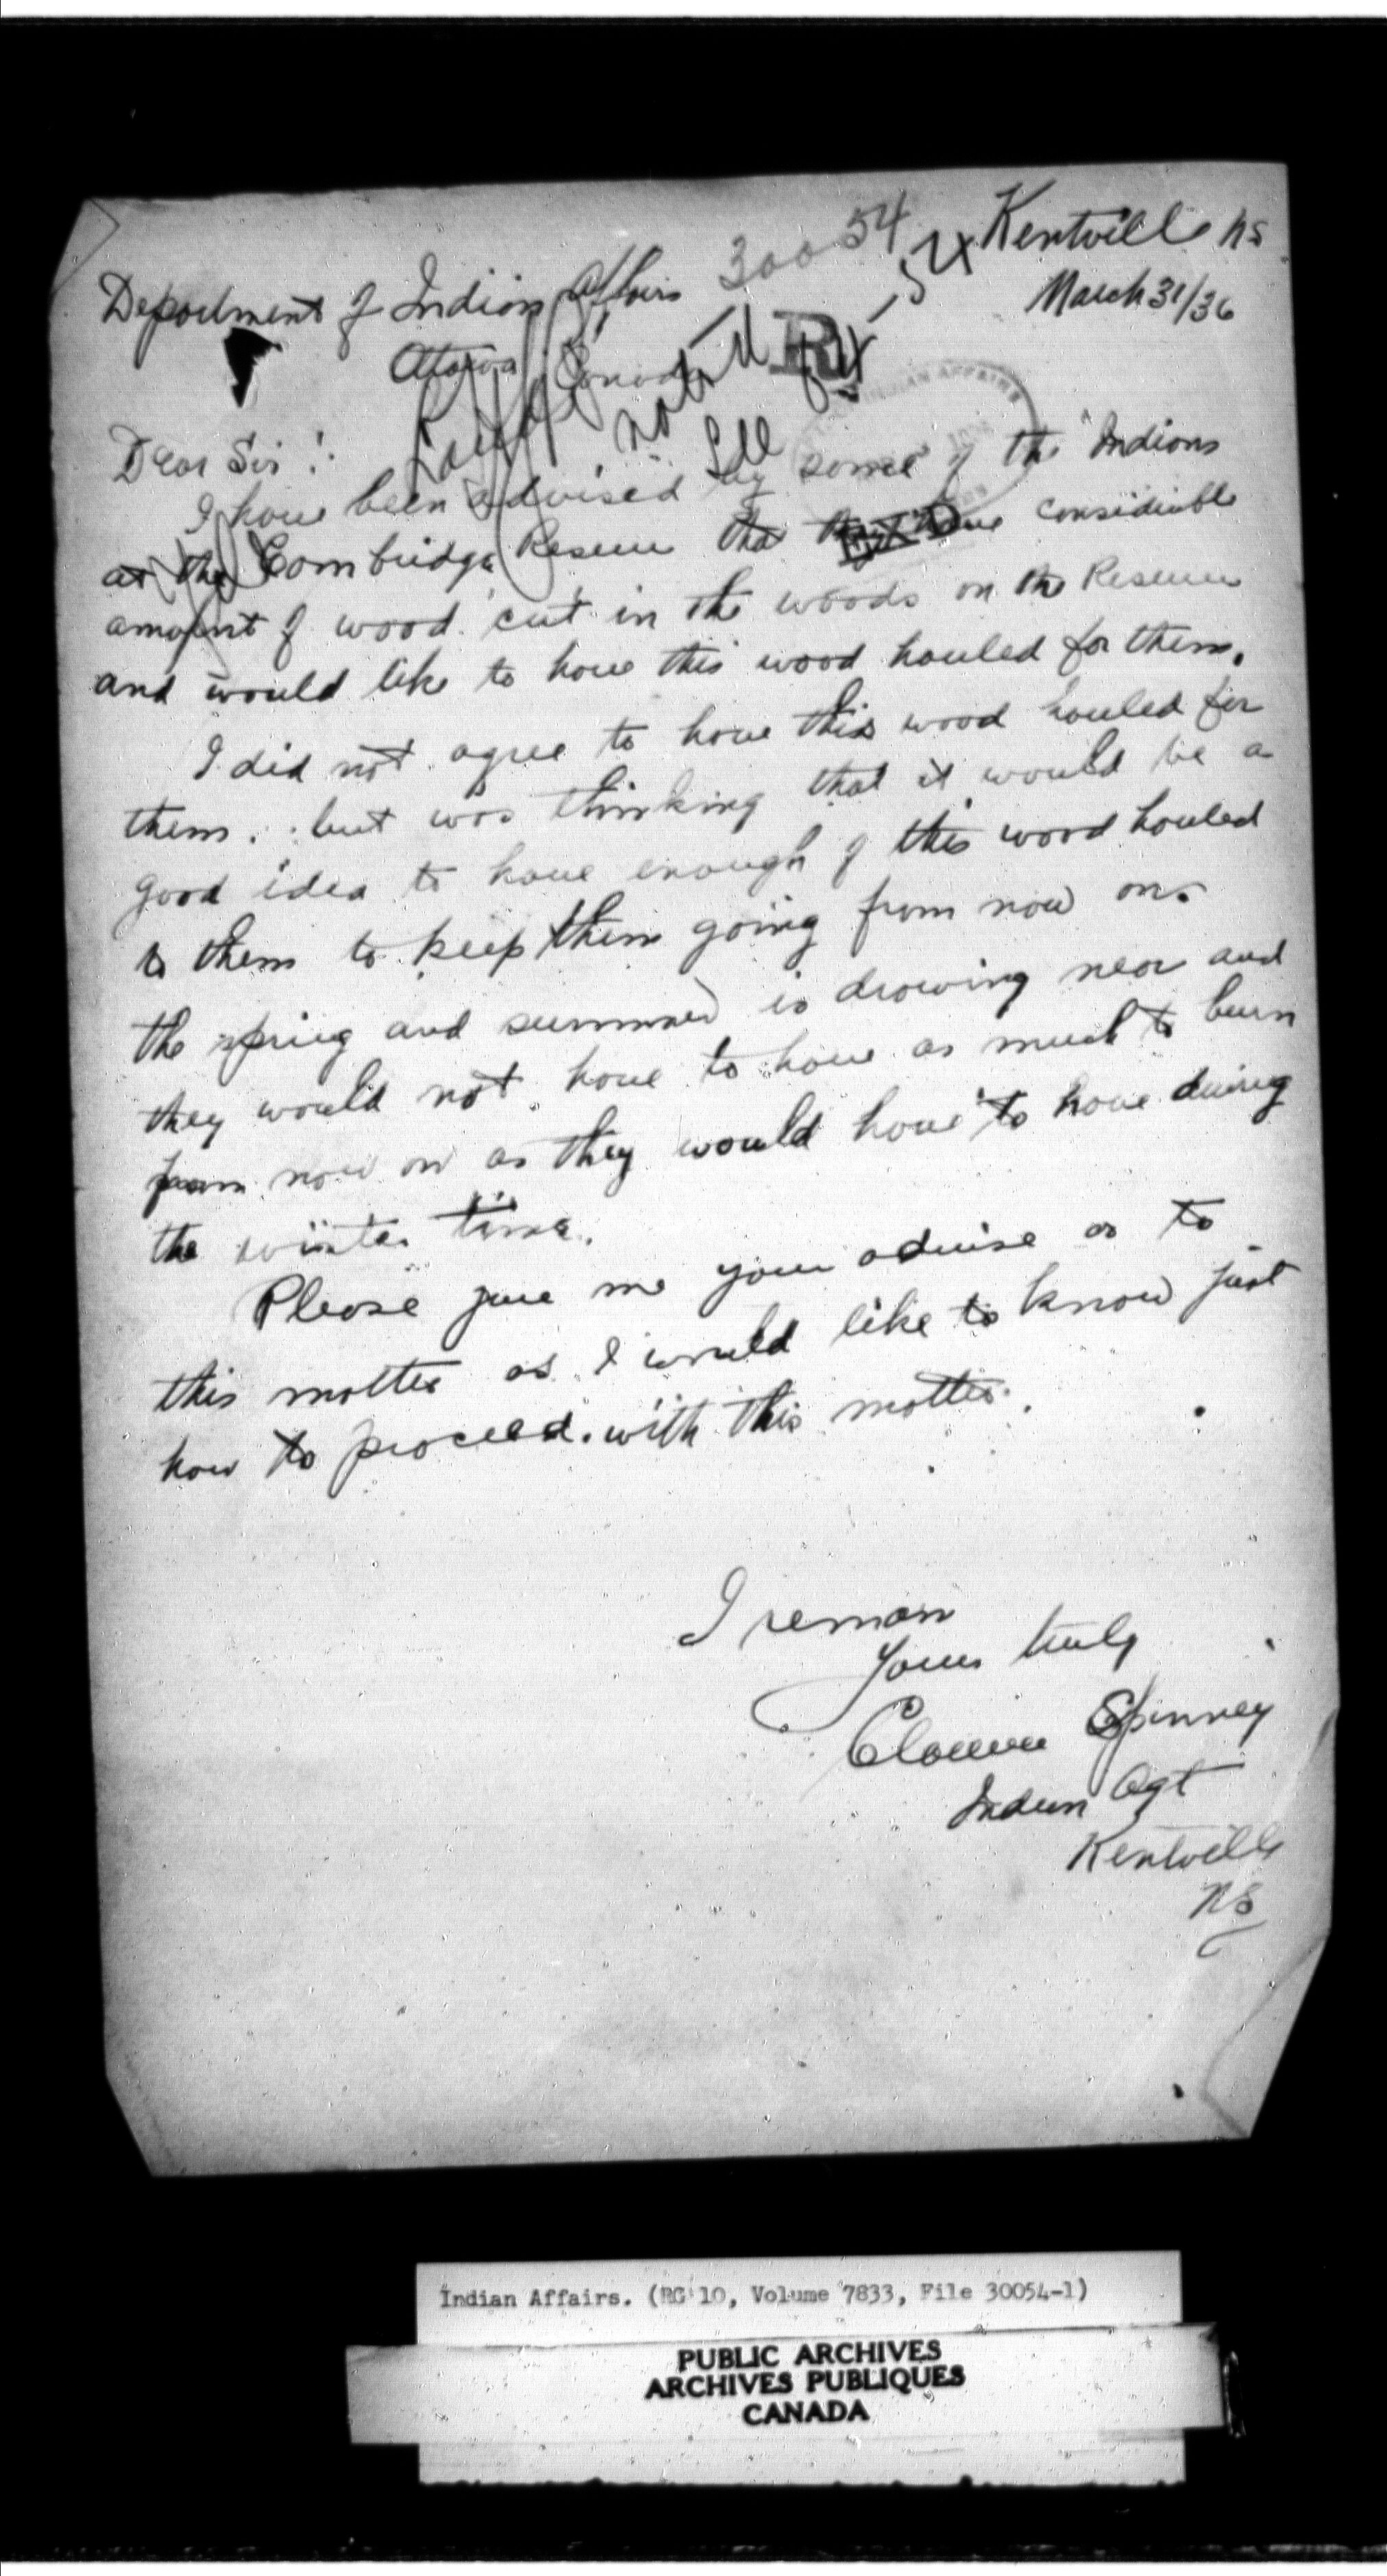 30054
Kentville NS
March 31/36
Department of Indian Affairs
Otawa Canada
R
INDIAN AFFAIRS
Dear Sir :
I have been advised by some of the Indians
at the Cambridge Reserve that they have considerble
amount of wood cut in the woods on the Reserve
and would like to have this wood hauled for them.
I did not agree to have this wood hauled for
them. but was thinking that it would be a
good idea to have enough of this wood hauled
to them to keep them going from now on.
the spring and summer is drawing near and
they would not have to have as much to burn
from now on as they would have to have during
the winter time.
Please give me your advise as to
this matter as I would like to know just
how to proceed. with this matter.
I remain
Yours truly
Clarence Spinney
Indian Agt
Kentville
NS
Indian Affairs. (RG 10, Volume 7833, File 30054-1)
PUBLIC ARCHIVES
ARCHIVES PUBLIQUES
CANADA